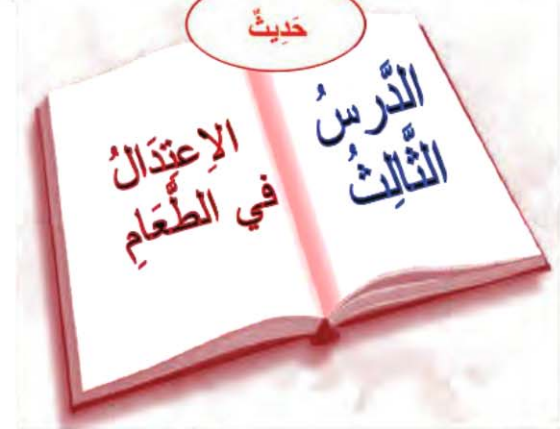 حَدِيثٌ
الدَّرسُ
الثَّالِثُ
الاِعتِدَالُ
في الطَّعَامِ